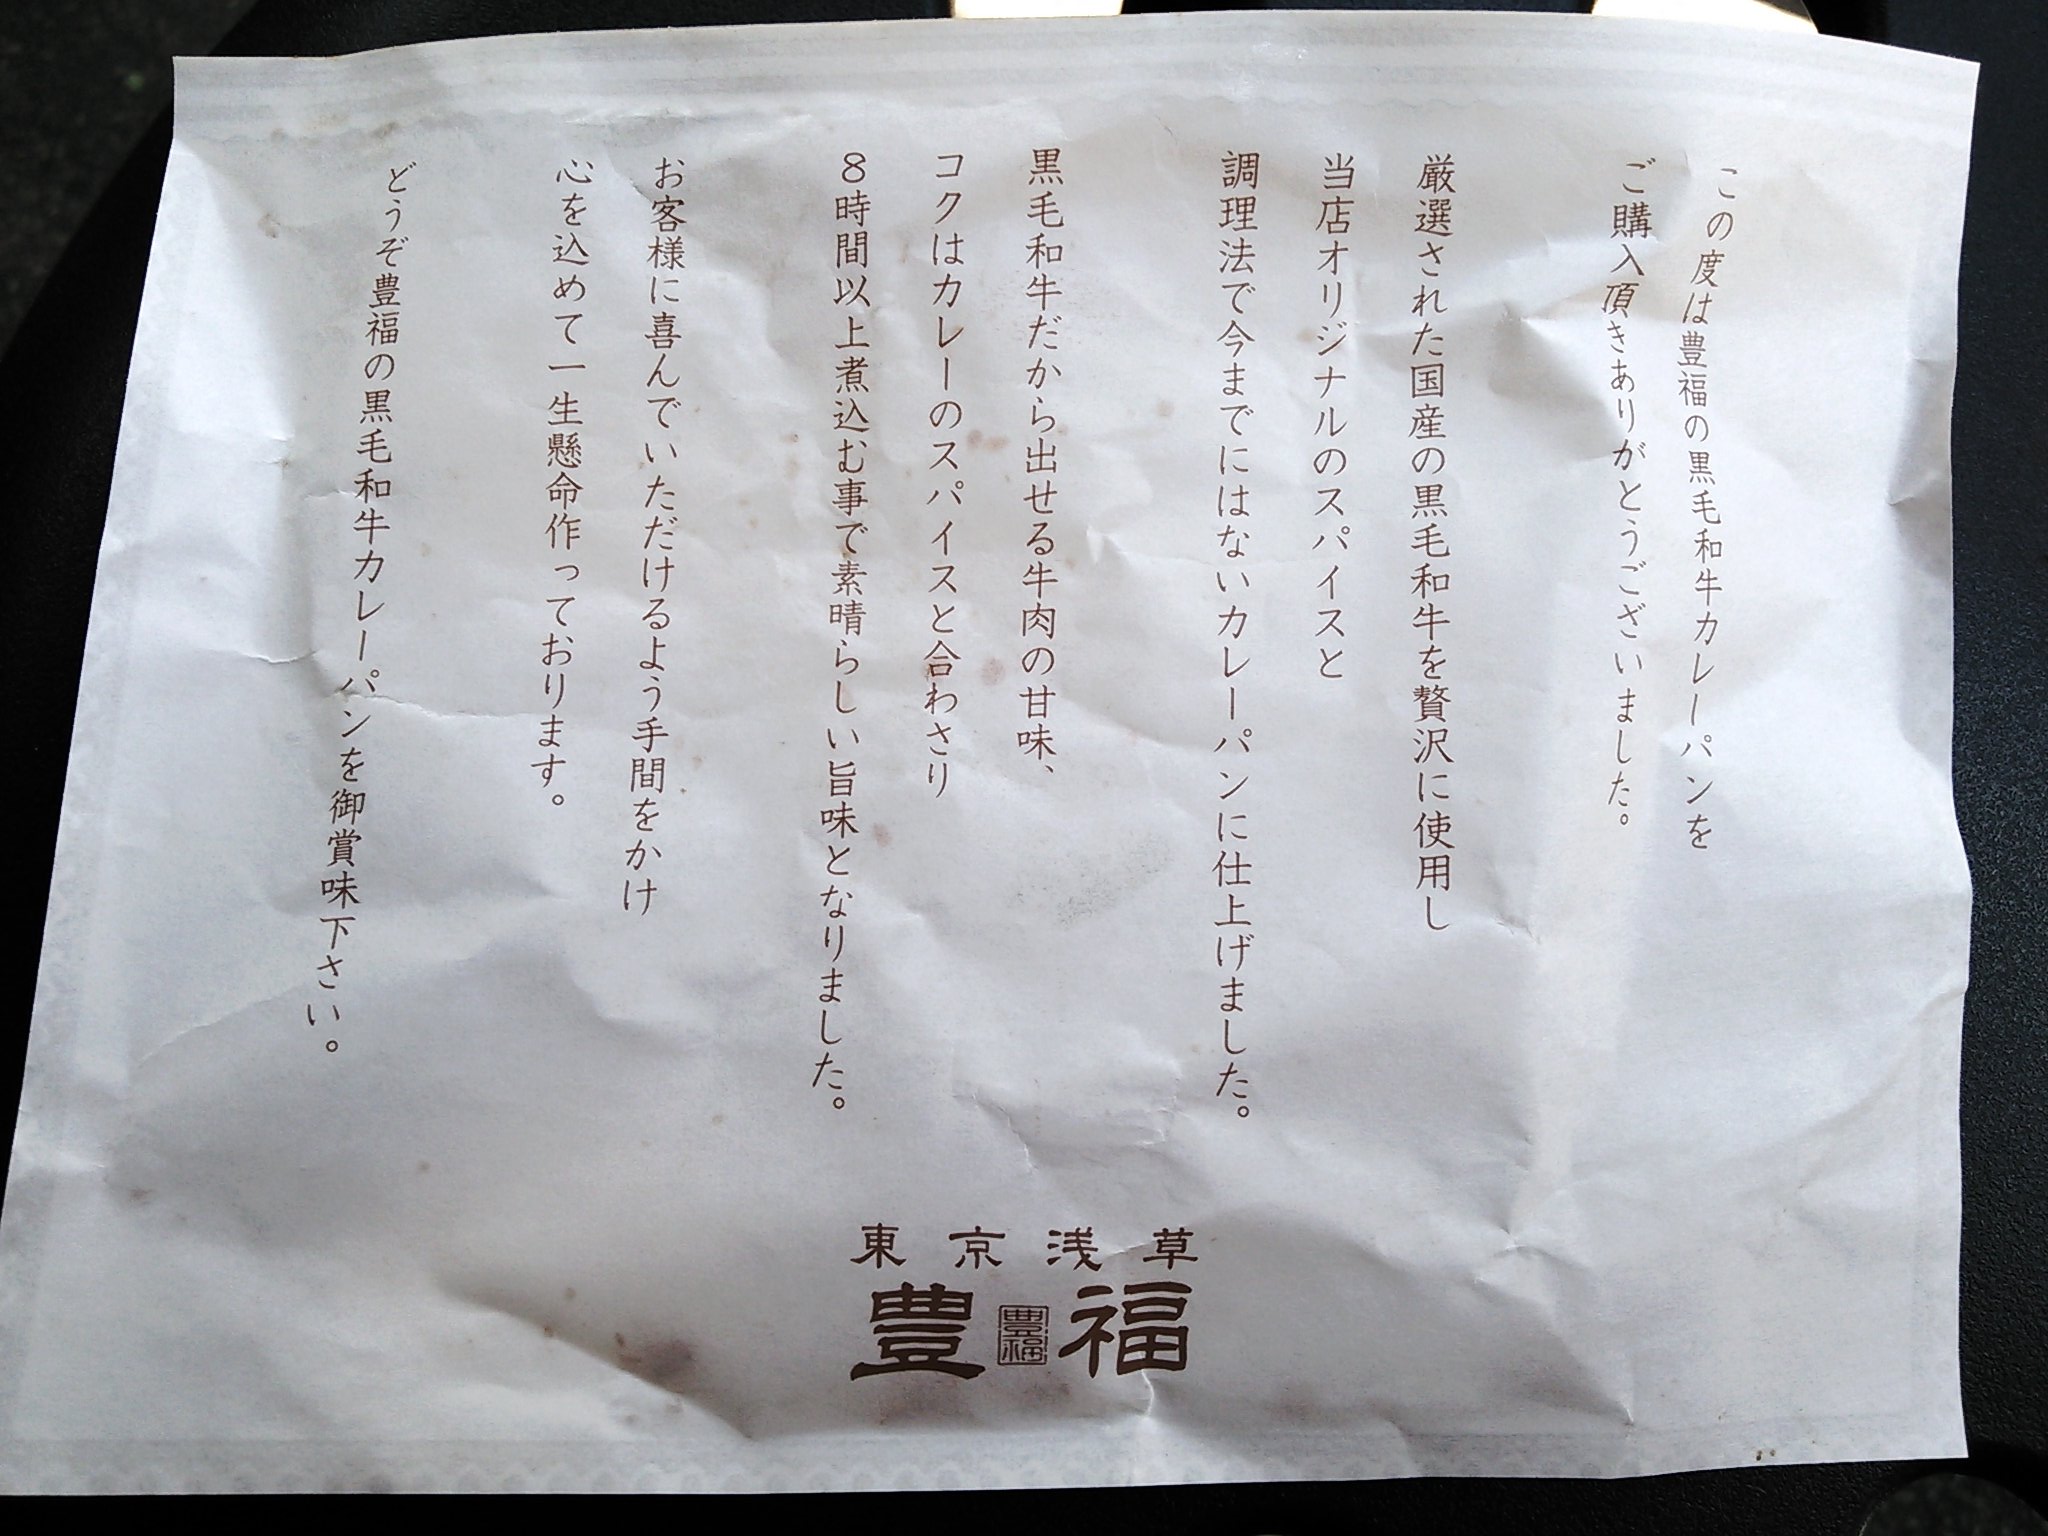 この度は豊福の黒毛和牛カレーパンを
ご購入頂きありがとうございました。
厳選された国産の黒毛和牛を贅沢に使用し
当店オリジナルのスパイスと
調理法で今までにはないカレーパンに仕上げました。
黒毛和牛だから出せる牛肉の甘味、
コクはカレーのスパイスと合わさり
8時間以上煮込む事で素晴らしい旨味となりました。
お客様に喜んでいただけるよう手間をかけ
心を込めて一生懸命作っております。
どうぞ豊福の黒毛和牛カレーパンを御賞味下さい。
東京浅草
豊福
豊福